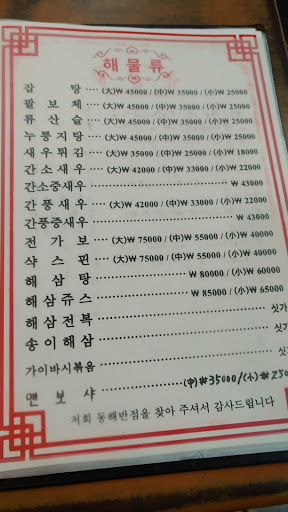 해물류
잡 탕 ···· (大)₩ 45000 / (中)₩ 35000 / (小)₩ 25000
팔 보 채 ··· (大)₩ 45000 / (中)₩ 35000 / (小)₩ 25000
류 산 슬 ··· (大)₩ 45000 / (中)₩ 35000 / (小)₩ 25000
누룽지탕 ··· (大)₩ 45000 / (中)₩ 35000 / (小)₩ 25000
새우튀김 ··· (大)₩ 35000 / (中)₩ 25000 / (小)₩ 18000
간소새우 ··· (大)₩ 42000 / (中)₩ 33000 / (小)₩ 22000
간소중새우 ······························ ₩ 43000
간풍새우 ··· (大)₩ 42000 / (中)₩ 33000 / (小)₩ 22000
간풍중새우 ······························ ₩ 43000
전 가 보 ··· (大)₩ 75000 / (中)₩ 55000 / (小)₩ 40000
샥 스 핀 ··· (大)₩ 75000 / (中)₩ 55000 / (小)₩ 40000
해 삼 탕 ···················· ₩ 80000 / (小)₩ 60000
해삼쥬스 ···················· ₩ 85000 / (小)₩ 65000
해삼전복 ······························ 싯가
송이해삼 ······························ 싯
가이바시볶음 ······························ 싯
맨 보 샤 ···················· (中)₩35000/(小)₩250
저희 동해반점을 찾아 주셔서 감사드립니다